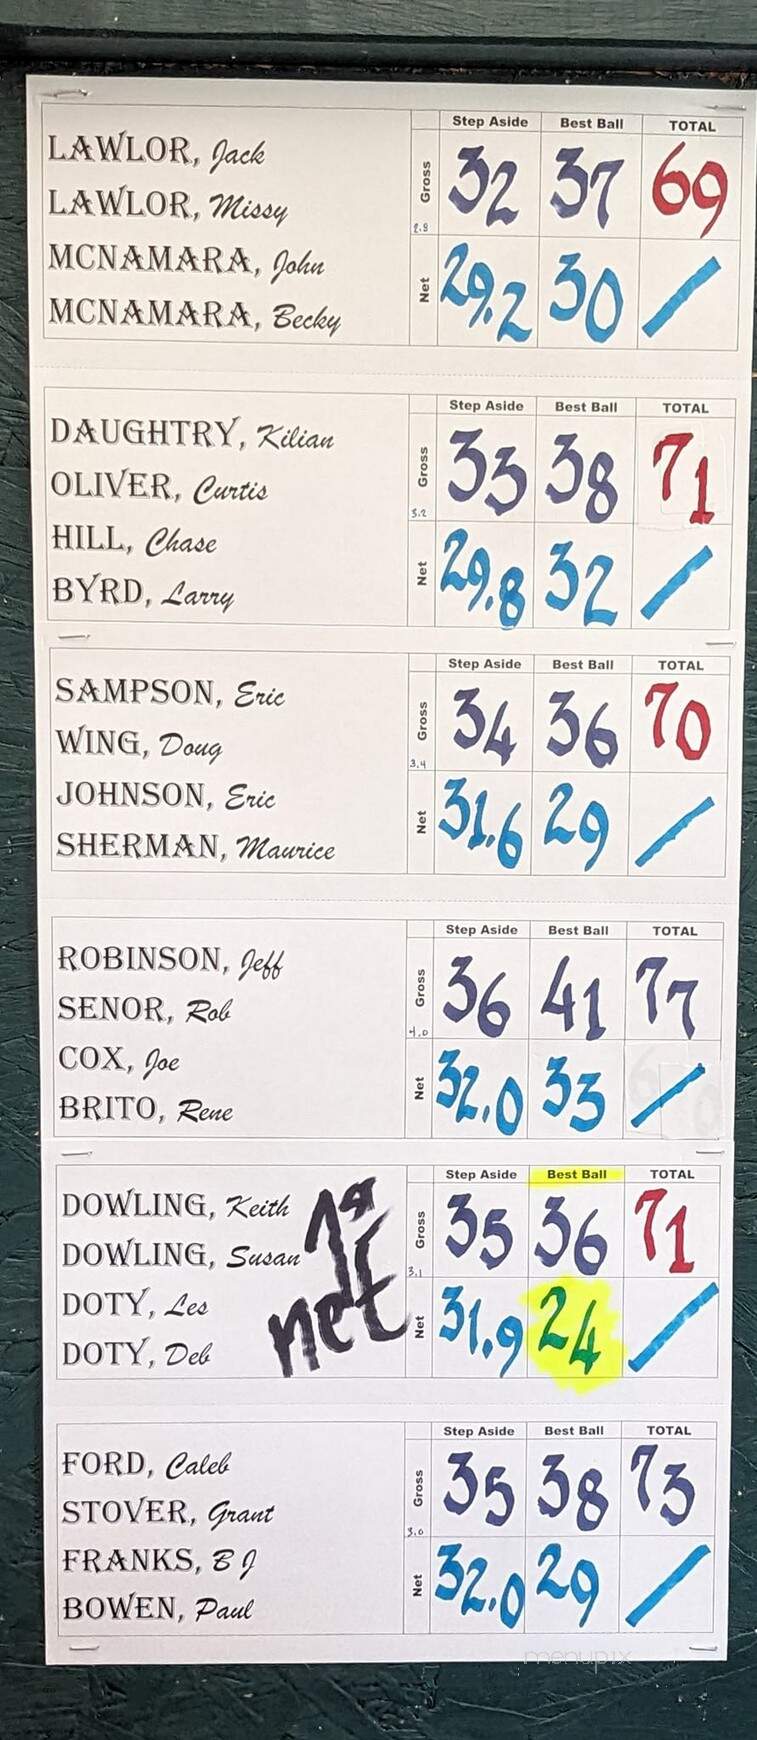 Step Aside Best Ball TOTAL
LAWLOR, Jack
LAWLOR, Missy
Gross 32 37 69
2.8
MCNAMARA, John
MCNAMARA, Becky
Net 29.2 30 /
Step Aside Best Ball TOTAL
DAUGHTRY, Kilian
OLIVER, Curtis
Gross 33 38 71
3.2
HILL, Chase
BYRD, Larry
Net 29.8 32 /
Step Aside Best Ball TOTAL
SAMPSON, Eric
WING, Doug
Gross 34 36 70
3.4
JOHNSON, Eric
SHERMAN, Maurice
Net 31.6 29 /
Step Aside Best Ball TOTAL
ROBINSON, Jeff
SENOR, Rob
Gross 36 41 77
4.0
COX, Joe
BRITO, Rene
Net 32.0 33 /
Step Aside Best Ball TOTAL
DOWLING, Keith
DOWLING, Susan
1st
Gross 35 36 71
3.1
DOTY, Les
DOTY, Deb
net
Net 31.9 24 /
Step Aside Best Ball TOTAL
FORD, Caleb
STOVER, Grant
Gross 35 38 73
3.0
FRANKS, B J
BOWEN, Paul
Net 32.0 29 /
menupix